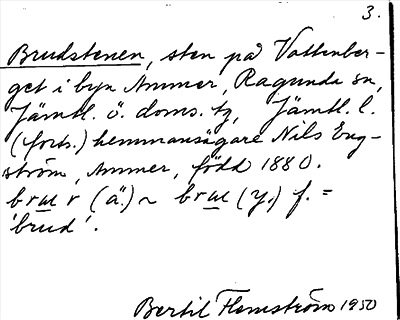 3.
Brudstenen, sten på Vattenber-
get i byn Ammer, Ragunda sn,
Jämtl. ö. doms. tg, Jämtl. l.
(forts.) hemmansägare Nils Eng-
ström, Ammer, född 1880.
(ä.) ~ (y.) f. =
'brud'.
Bertil Flemström 1950